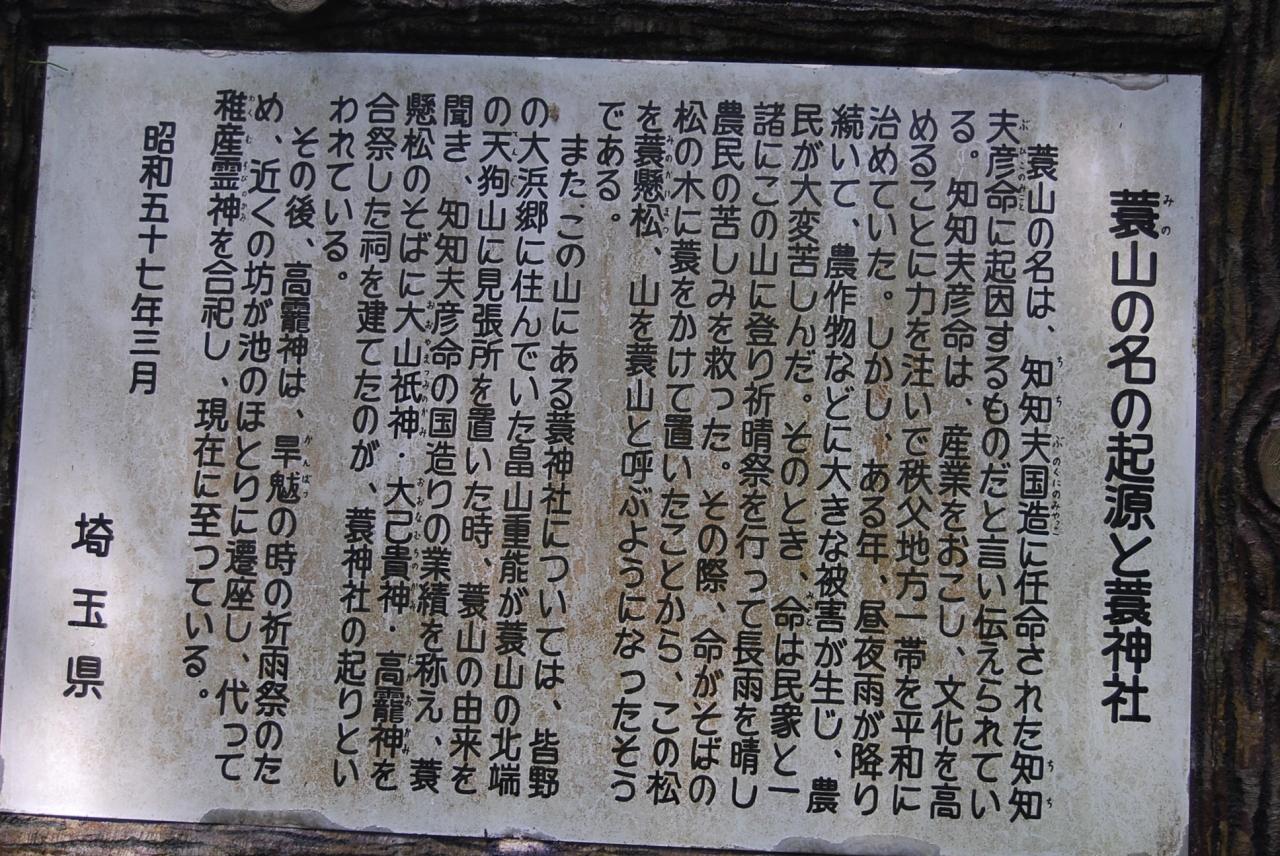 蓑山の名の起源と蓑神社
蓑山の名は、知知夫国造に任命された知知
夫彦命に起因するものだと言い伝えられてい
る。知知夫彦命は、産業をおこし、文化を高
めることに力を注いで秩父地方一帯を平和に
治めていた。しかし、ある年、昼夜雨が降り
続いて、農作物などに大きな被害が生じ、農
民が大変苦しんだ。そのとき、命は民家と一
諸にこの山に登り祈晴祭を行って長雨を晴し
農民の苦しみを救った。その際、命がそばの
松の木に蓑をかけて置いたことから、この松
を蓑懸松、山を蓑山と呼ぶようになったそう
である。
またこの山にある蓑神社については、皆野
の大浜郷に住んでいた畠山重能が蓑山の北端
の天狗山に見張所を置いた時、蓑山の由来を
聞き、知知夫彦命の国造りの業績を称え、蓑
懸松のそばに大山祇神・大己貴神・高龗神を
合祭した祠を建てたのが、蓑神社の起りとい
われている。
その後、高龗神は、旱魃の時の祈雨祭のた
め、近くの坊が池のほとりに遷座し、代って
稚産霊神を合祀し、現在に至っている。
昭和五十七年三月
埼玉県